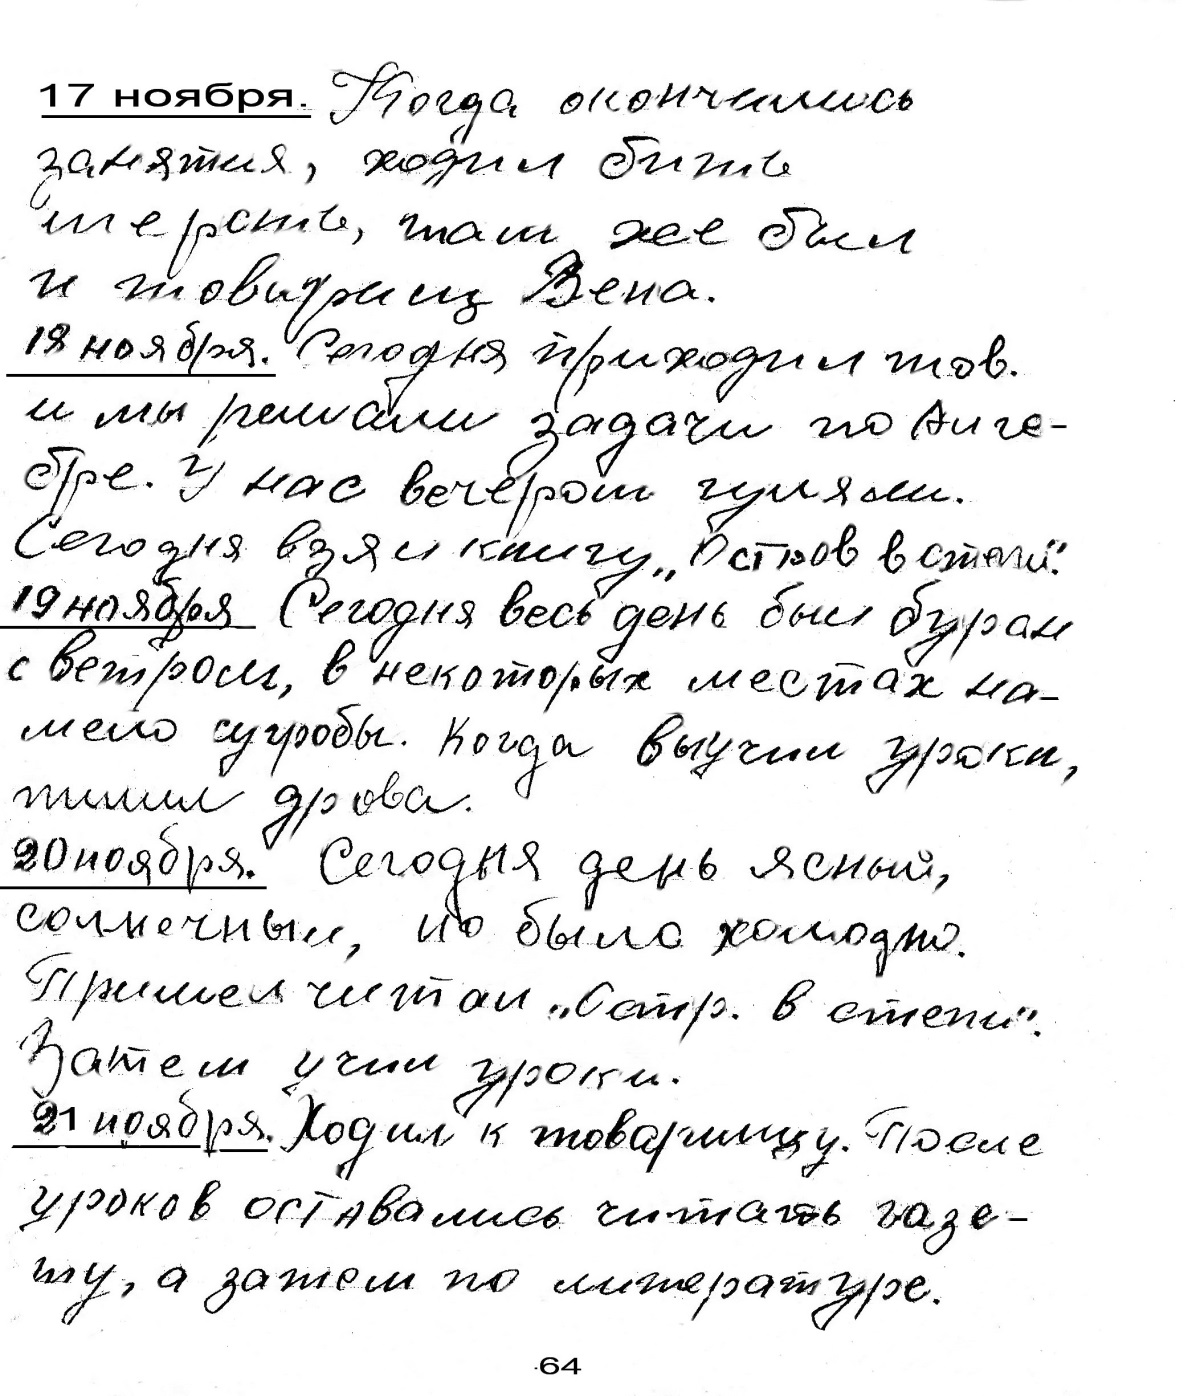 17 ноября. Когда окончились
занятия, ходил бить
шерсть, там же был
и товарищ Вена.
18 ноября. Сегодня приходил тов.
и мы решали задачи по Алге-
бре. У нас вечером гуляли.
Сегодня взял книгу „Остров в степи".
19 ноября Сегодня весь день был буран
с ветром, в некоторых местах на-
мело сугробы. Когда выучил уроки,
пилил дрова.
20 ноября. Сегодня день ясный,
солнечный, но было холодно.
Пришел читал „Остр. в степи".
Затем учил уроки.
21 ноября. Ходил к товарищу. После
уроков оставались читать газе-
ту, а затем по литературе.
64